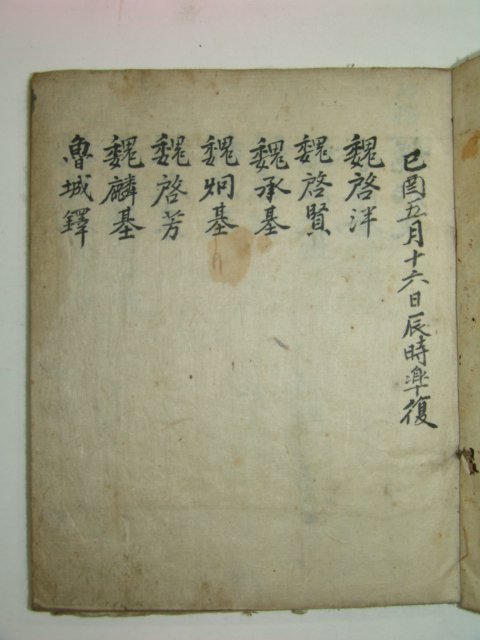 己酉五月十六日辰時卒復
魏啓泮
魏啓賢
魏承基
魏炯基
魏啓芳
魏麟基
魯城鐸